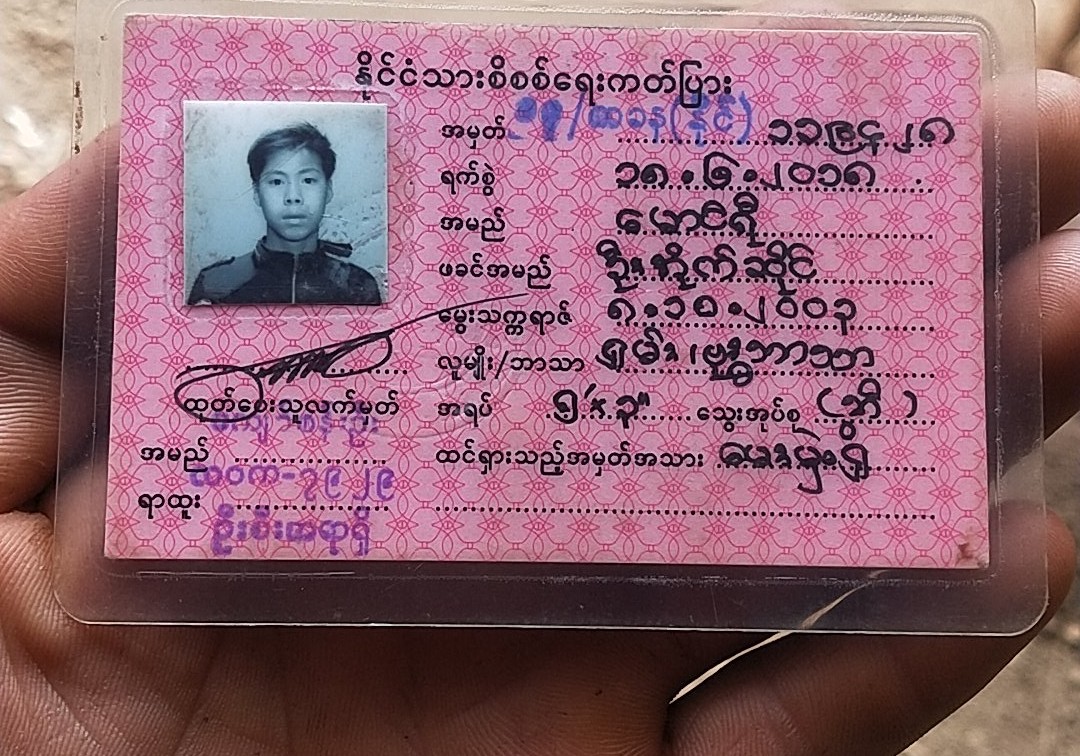 နိုင်ငံသားစိစစ်ရေးကတ်ပြား
အမှတ် /ထခန(နိုင်)
ရက်စွဲ ၁၈.၆.၂၀၁၈
အမည် မောင်ရီ
ဖခင်အမည် ဦးအိုက်ဆိုင်
မွေးသက္ကရာဇ် ၈.၁၀.၂၀၀၃
လူမျိုး/ဘာသာ ရှမ်း၊ဗုဒ္ဓဘာသာ
အရပ် ၅'×၃" သွေးအုပ်စု (ဘီ)
ထင်ရှားသည့်အမှတ်အသား
ထုတ်ပေးသူလက်မှတ်
အမည်
လဝက-၇၉၂၉
ရာထူး
ဦးစီးအရာရှိ